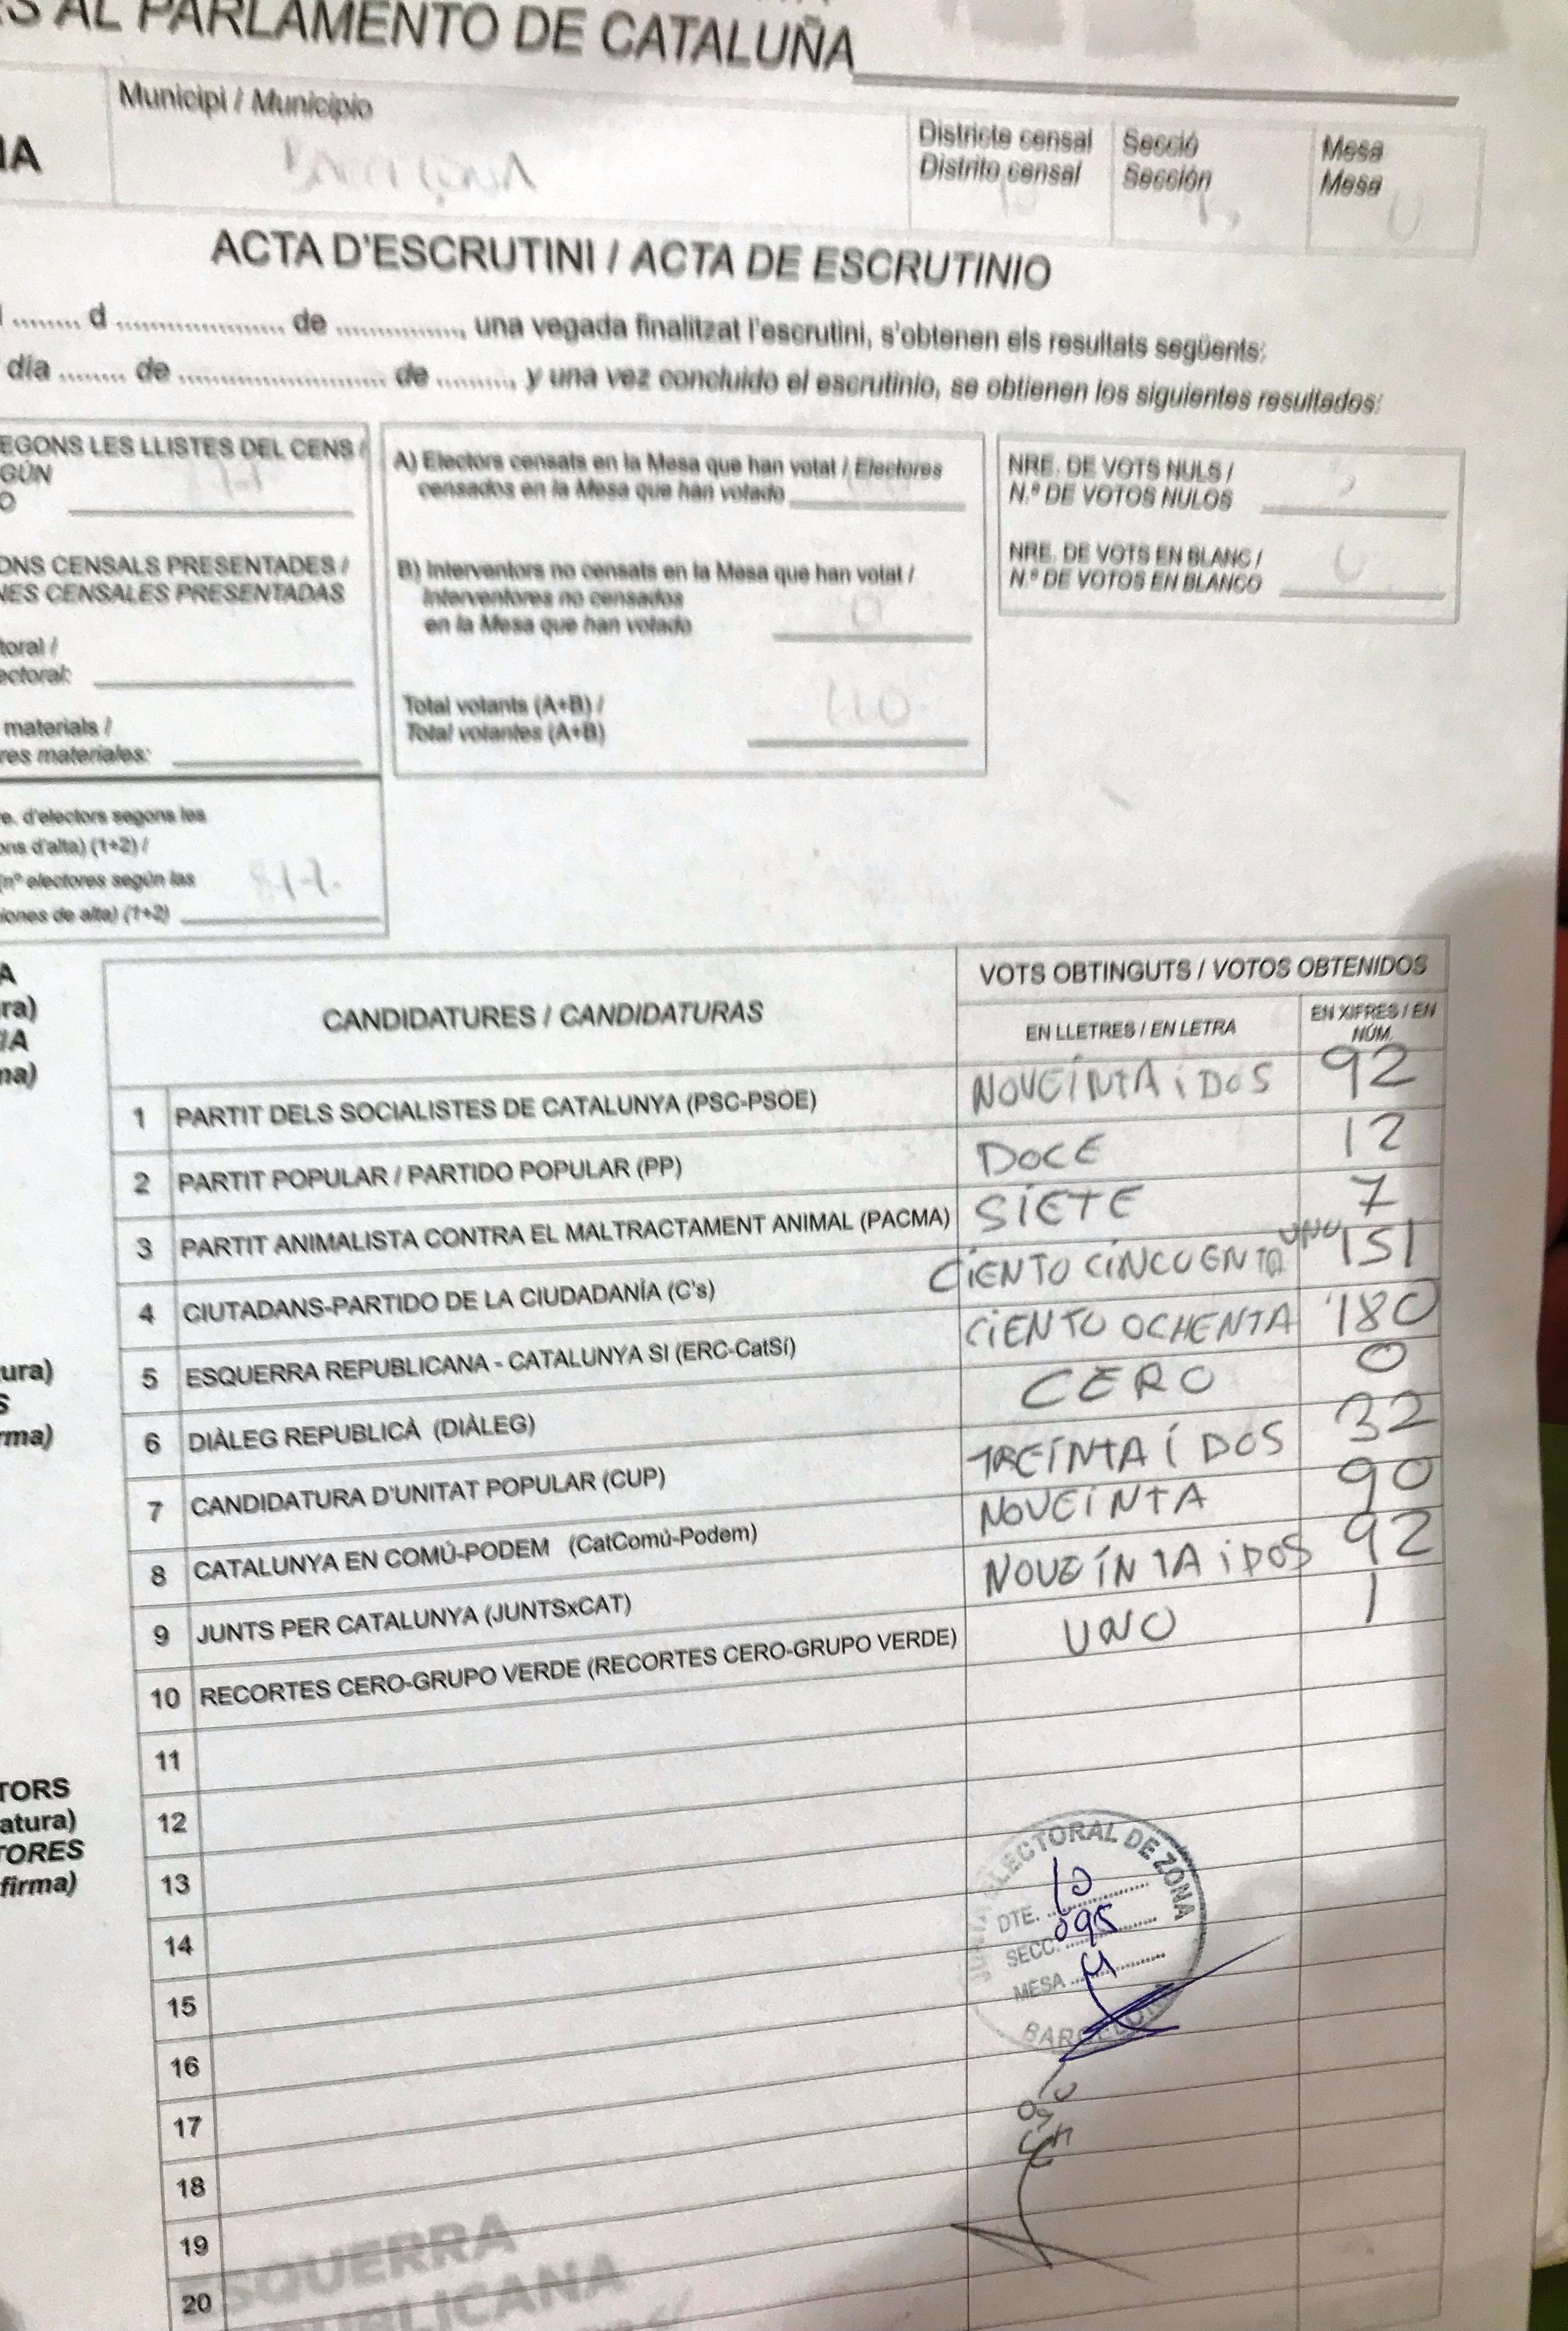 S AL PARLAMENTO DE CATALUÑA
Municipi / Municipio
Districte censal
Distrito censal
Secció
Sección
Mesa
Mesa
ACTA D'ESCRUTINI / ACTA DE ESCRUTINIO
d ........ de ........, una vegada finalitzat l'escrutini, s'obtenen els resultats següents:
día ...... de ........ de ........ y una vez concluido el escrutinio, se obtienen los siguientes resultados:
EGONS LES LLISTES DEL CENS /
GÚN
ONS CENSALS PRESENTADES /
NES CENSALES PRESENTADAS
toral /
ectoral:
materials /
res materiales:
e. d'electors segons les
ons d'alta) (1+2) /
(nº electores según las
iones de alta) (1+2)
A) Electors censats en la Mesa que han votat / Electores
censados en la Mesa que han votado
B) Interventors no censats en la Mesa que han votat /
Interventores no censados
en la Mesa que han votado
0
Total votants (A+B) /
Total votantes (A+B)
NRE. DE VOTS NULS /
N.º DE VOTOS NULOS
NRE. DE VOTS EN BLANC /
N.º DE VOTOS EN BLANCO
CANDIDATURES / CANDIDATURAS
VOTS OBTINGUTS / VOTOS OBTENIDOS
EN LLETRES / EN LETRA
EN XIFRES / EN NÚM.
1 PARTIT DELS SOCIALISTES DE CATALUNYA (PSC-PSOE) NOVEINTA i DOS 92
2 PARTIT POPULAR / PARTIDO POPULAR (PP) DOCE 12
3 PARTIT ANIMALISTA CONTRA EL MALTRACTAMENT ANIMAL (PACMA) SIETE 7
4 CIUTADANS-PARTIDO DE LA CIUDADANÍA (C's) CIENTO CINCUENTA UNO 151
5 ESQUERRA REPUBLICANA - CATALUNYA SI (ERC-CatSí) CIENTO OCHENTA 180
6 DIÀLEG REPUBLICÀ (DIÀLEG) CERO 0
7 CANDIDATURA D'UNITAT POPULAR (CUP) TREINTA i DOS 32
8 CATALUNYA EN COMÚ-PODEM (CatComú-Podem) NOVEINTA 90
9 JUNTS PER CATALUNYA (JUNTSxCAT) NOVEINTA i DOS 92
10 RECORTES CERO-GRUPO VERDE (RECORTES CERO-GRUPO VERDE) UNO 1
11
12
13
14
15
16
17
18
19
20
TORS
atura)
TORES
firma)
JUNTA ELECTORAL DE ZONA
DTE. 10
SECC. 095
MESA U
BARCELONA
SQUERRA
UBLICANA